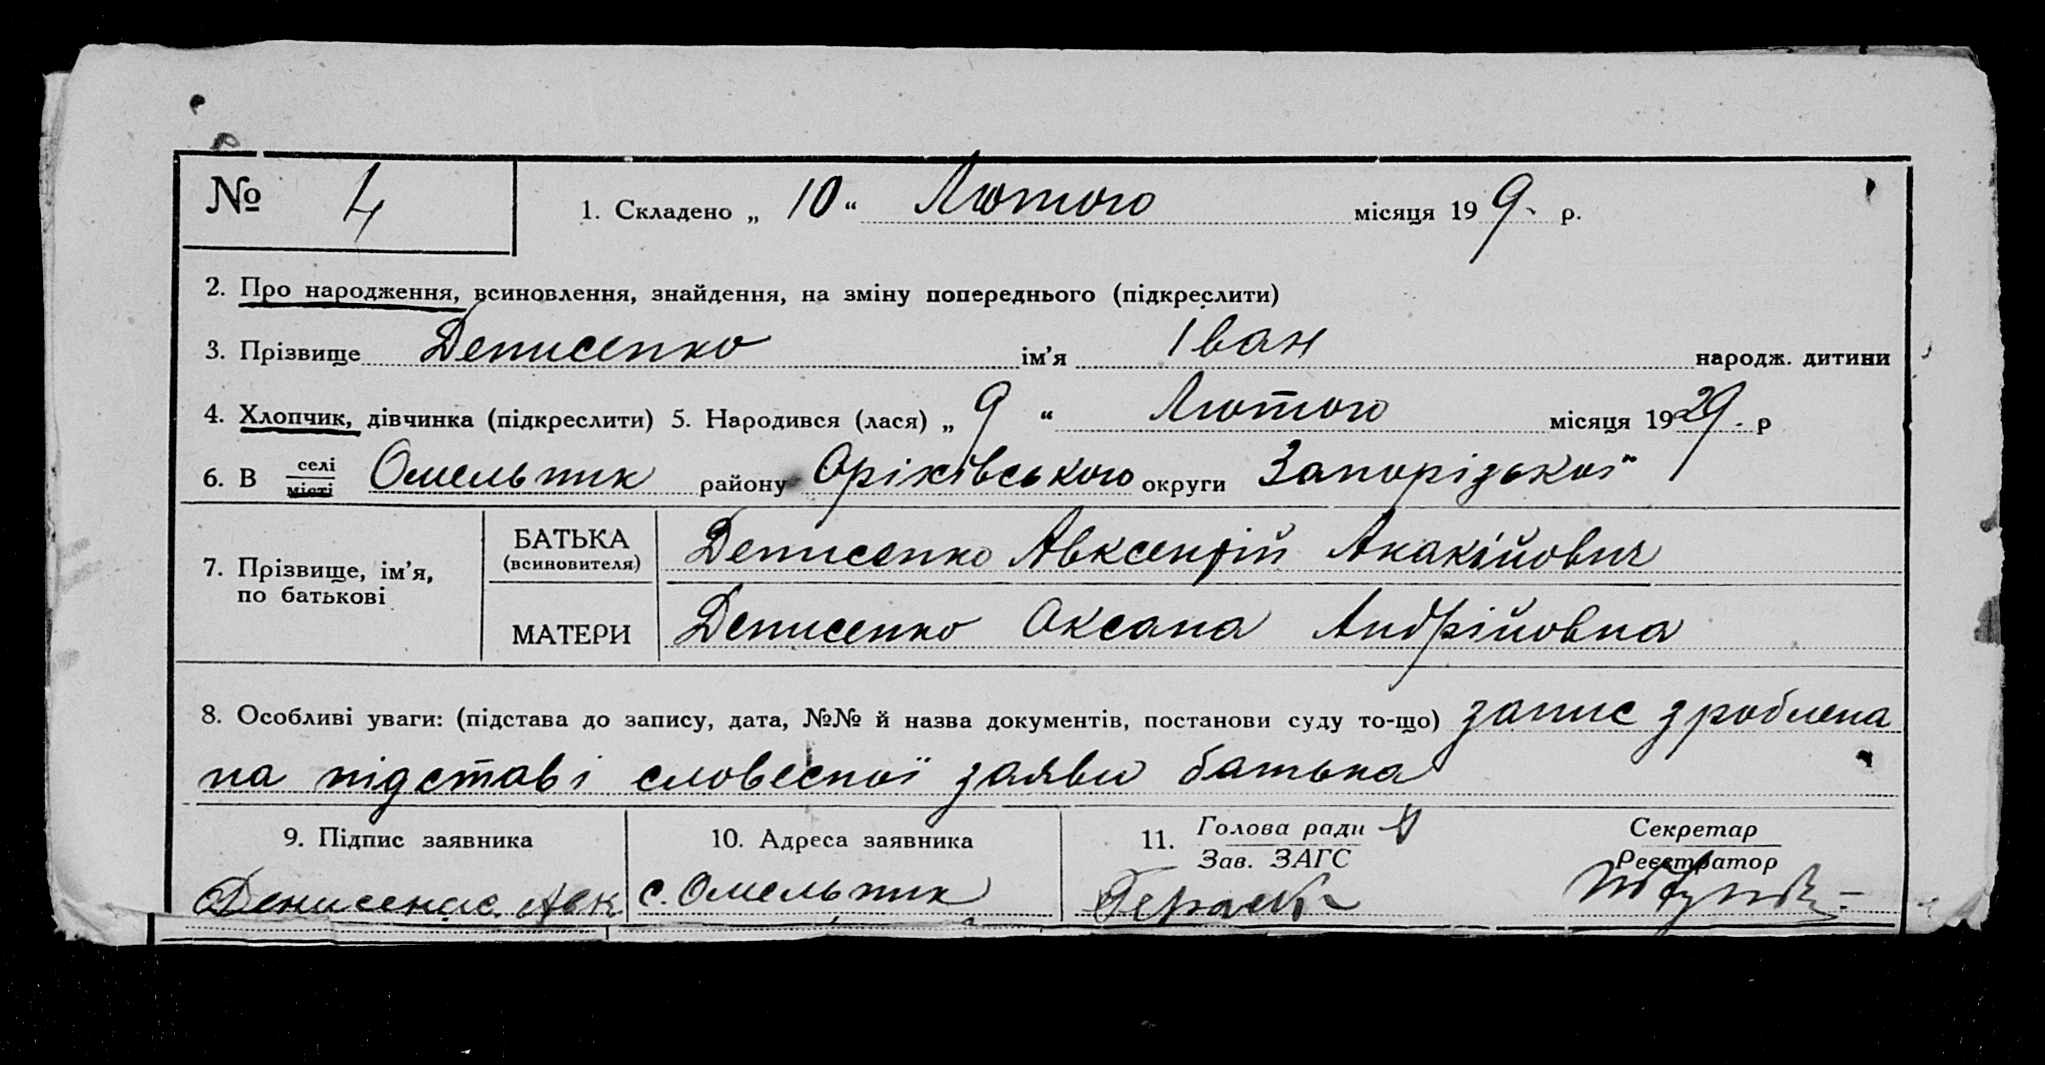 № 4
1. Складено „ 10 “ Лютого місяця 19 9. р.
2. Про народження, всиновлення, знайдення, на зміну попереднього (підкреслити)
3. Прізвище Денисенко ім’я Іван народж. дитини
4. Хлопчик, дівчинка (підкреслити) 5. Народився (лася) „ 9 “ Лютого місяця 1929. р
6. В селі місті Омельник району Оріхівського округи Запорізької
7. Прізвище, ім’я, по батькові
БАТЬКА (всиновителя) Денисенко Авксентій Акакійович
МАТЕРИ Денисенко Оксана Андрійовна
8. Особливі уваги: (підстава до запису, дата, №№ й назва документів, постанови суду то-що) запис зроблена
на підставі словесної заяви батька
9. Підпис заявника 10. Адреса заявника 11. Голова ради Зав. ЗАГС Секретар Реєстратор
Авк с. Омельник